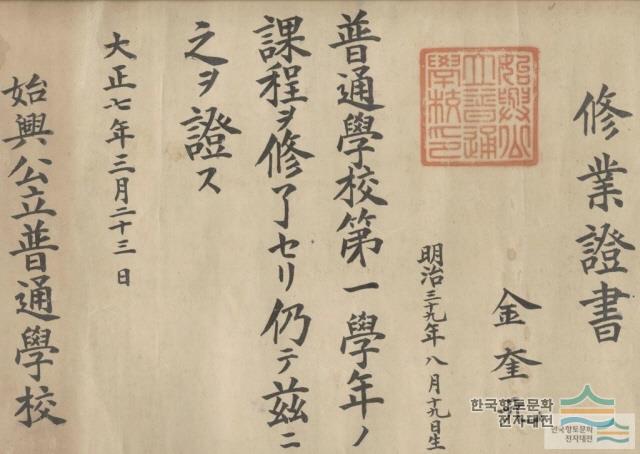 修業證書
金奎
明治三十九年八月十九日生
普通學校第一學年ノ
課程ヲ修了セリ仍テ茲ニ
之ヲ證ス
大正七年三月二十三日
始興公立普通學校
始興公
立普通
學校印
한국향토문화
전자대전
한국향토문화
전자대전